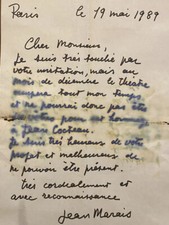 Paris le 19 mai 1989
Cher Monsieur,
Je suis très touché par
votre invitation, mais au
mois de décembre le théâtre
occupera tout mon temps
et ne pourrai donc pas être
des vôtres pour cet hommage
à Jean Cocteau.
Je suis très heureux de votre
projet et malheureux de
ne pouvoir être présent.
très cordialement et
avec reconnaissance
Jean Marais